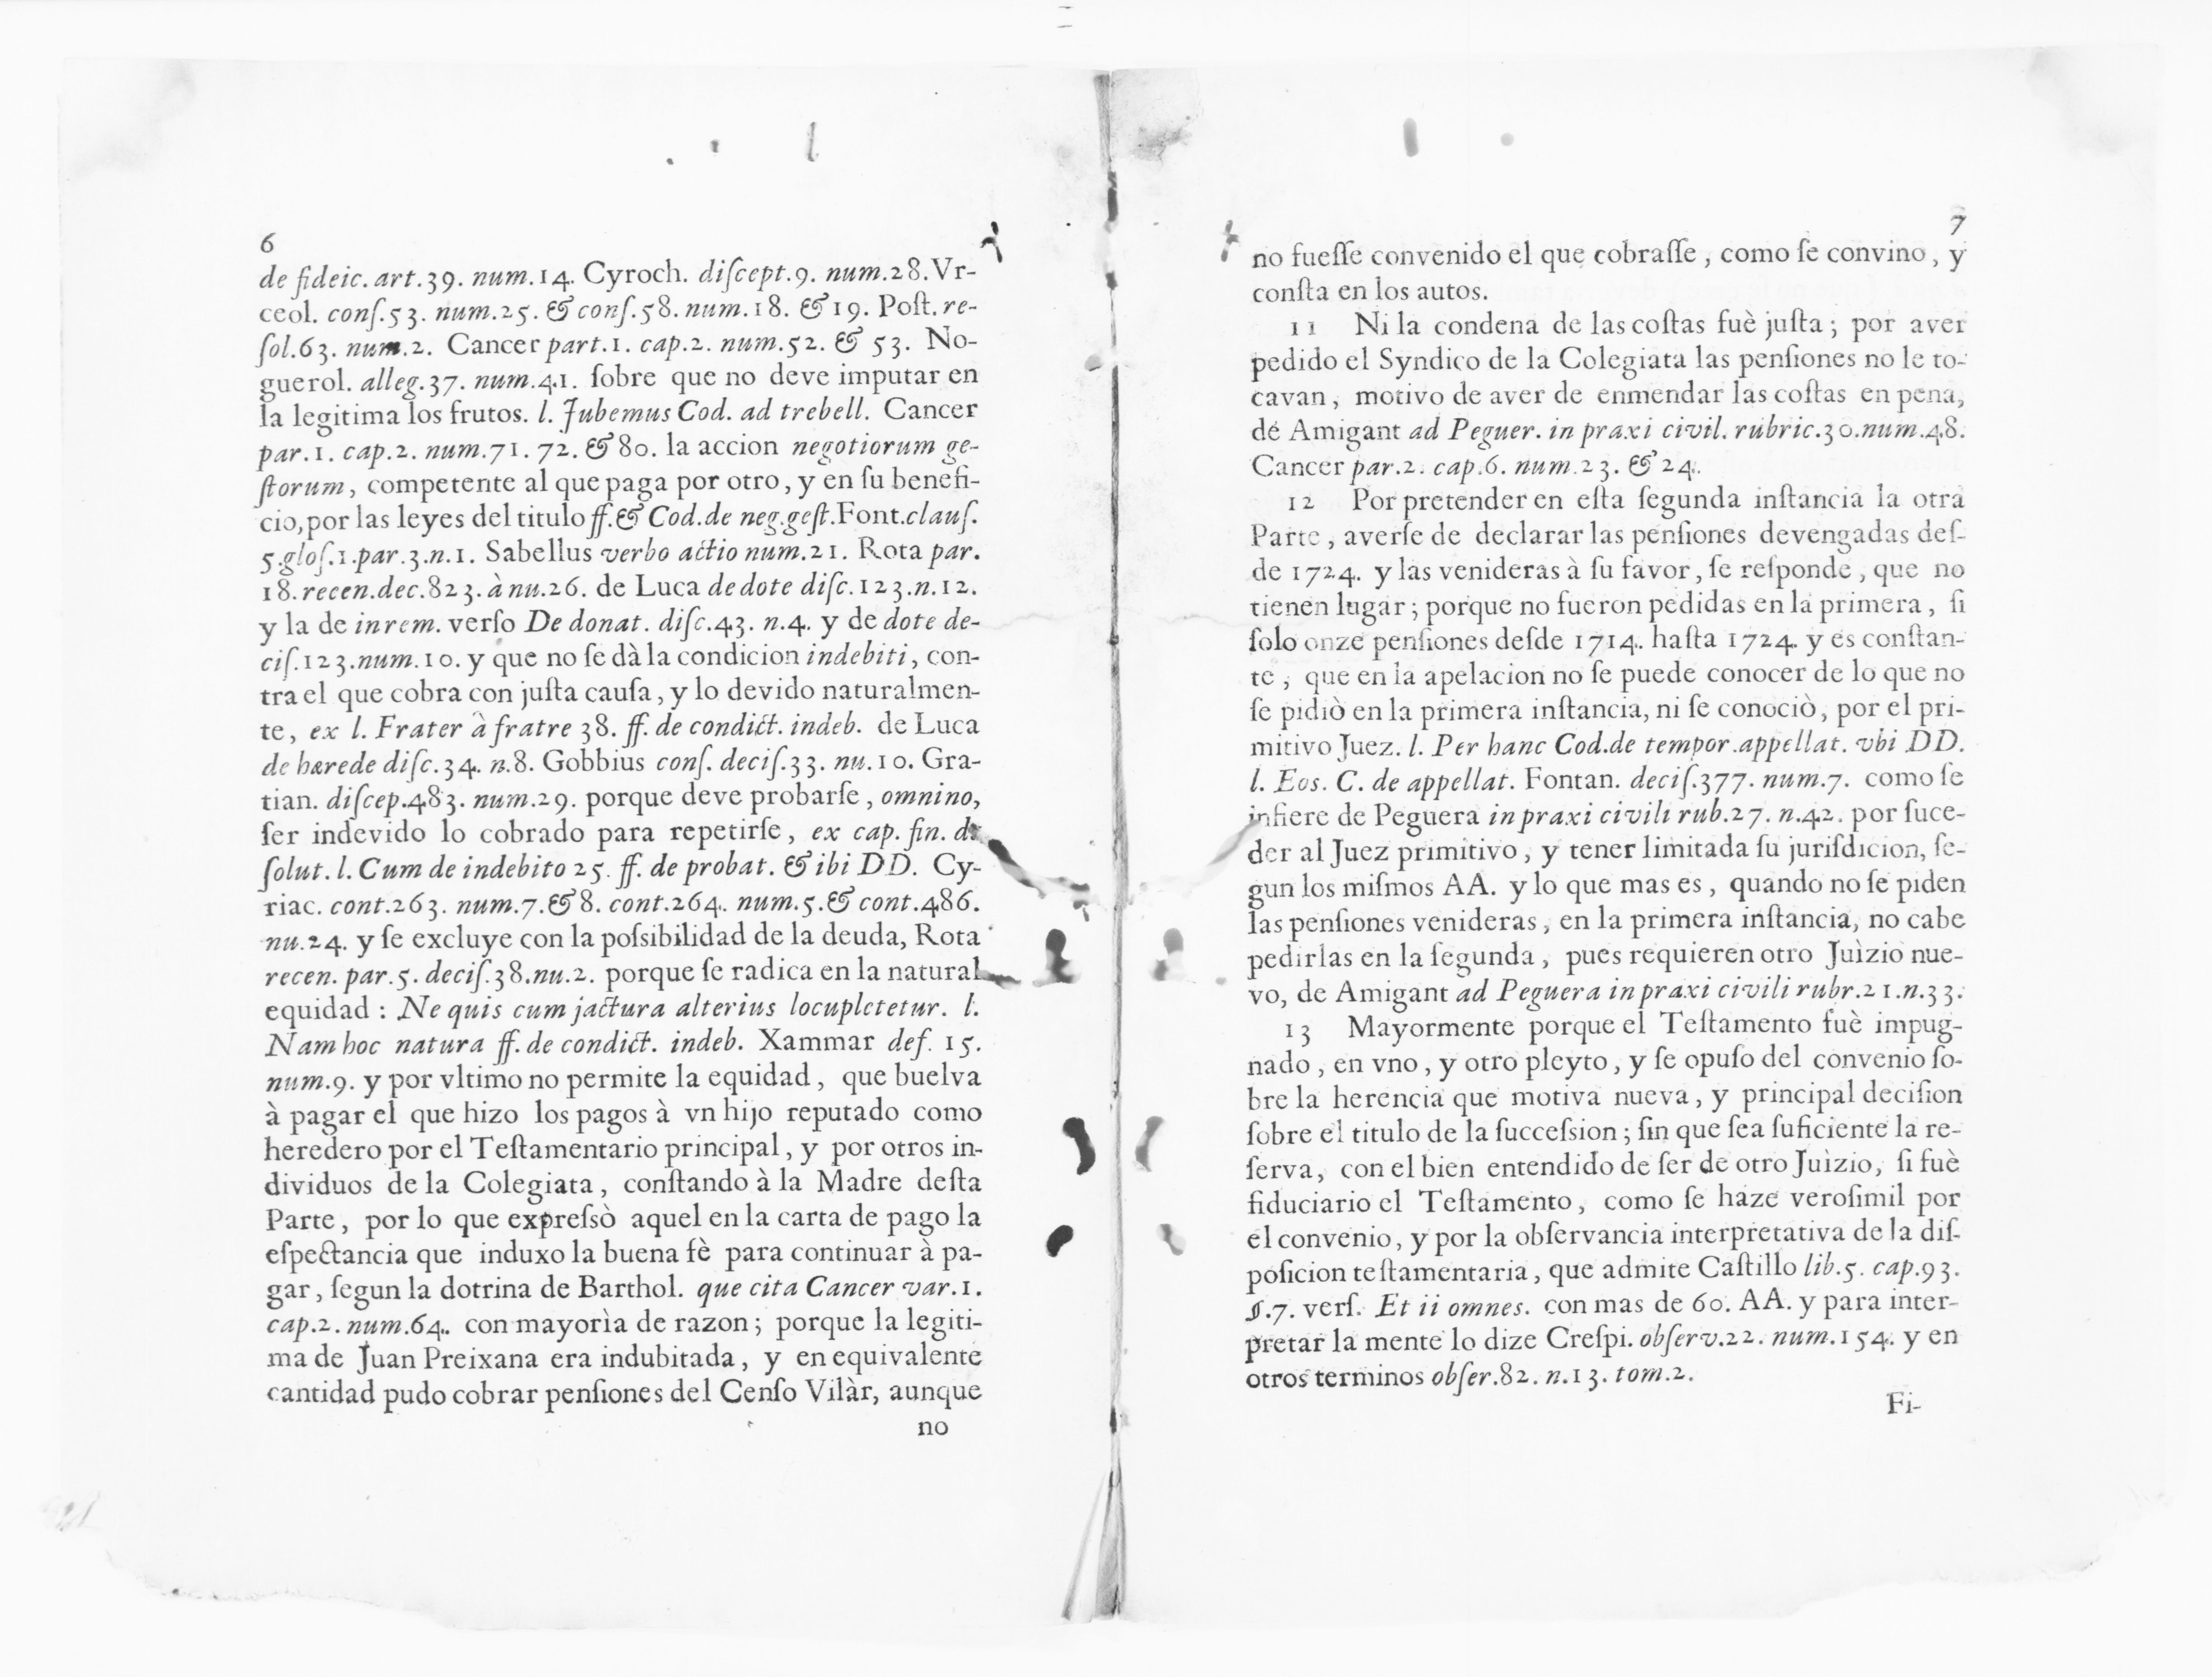 6
de fideic. art.39. num.14. Cyroch. diſcept.9. num.28.Vr-
ceol. conſ.53. num.25. & conſ.58. num.18. & 19. Poſt. re-
ſol.63. num.2. Cancer part.1. cap.2. num.52. & 53. No-
guerol. alleg.37. num.41. ſobre que no deve imputar en
la legitima los frutos. l. Jubemus Cod. ad trebell. Cancer
par.1. cap.2. num.71. 72. & 80. la accion negotiorum ge-
ſtorum, competente al que paga por otro, y en ſu benefi-
cio, por las leyes del titulo ff. & Cod. de neg. geſt. Font. clauſ.
5. gloſ.1. par.3. n.1. Sabellus verbo actio num.21. Rota par.
18. recen. dec.823. à nu.26. de Luca de dote diſc.123. n.12.
y la de in rem. verſo De donat. diſc.43. n.4. y de dote de-
ciſ.123. num.10. y que no ſe dà la condicion indebiti, con-
tra el que cobra con juſta cauſa, y lo devido naturalmen-
te, ex l. Frater à fratre 38. ff. de condict. indeb. de Luca
de hærede diſc.34. n.8. Gobbius conſ. deciſ.33. nu.10. Gra-
tian. diſcep.483. num.29. porque deve probarſe, omnino,
ſer indevido lo cobrado para repetirſe, ex cap. fin. de
ſolut. l. Cum de indebito 25. ff. de probat. & ibi DD. Cy-
riac. cont.263. num.7. & 8. cont.264. num.5. & cont.486.
nu.24. y ſe excluye con la poſsibilidad de la deuda, Rota
recen. par.5. deciſ.38. nu.2. porque ſe radica en la natural
equidad : Ne quis cum jactura alterius locupletetur. l.
Nam hoc natura ff. de condict. indeb. Xammar def. 15.
num.9. y por vltimo no permite la equidad, que buelva
à pagar el que hizo los pagos à vn hijo reputado como
heredero por el Teſtamentario principal, y por otros in-
dividuos de la Colegiata, conſtando à la Madre deſta
Parte, por lo que expreſsò aquel en la carta de pago la
eſpectancia que induxo la buena fè para continuar à pa-
gar, ſegun la dotrina de Barthol. que cita Cancer var.1.
cap.2. num.64. con mayorìa de razon; porque la legiti-
ma de Juan Preixana era indubitada, y en equivalente
cantidad pudo cobrar penſiones del Cenſo Vilàr, aunque
no
7
no fueſſe convenido el que cobraſſe, como ſe convino, y
conſta en los autos.
11 Ni la condena de las coſtas fuè juſta; por aver
pedido el Syndico de la Colegiata las penſiones no le to-
cavan, motivo de aver de enmendar las coſtas en pena,
de Amigant ad Peguer. in praxi civil. rubric.30. num.48.
Cancer par.2. cap.6. num.23. & 24.
12 Por pretender en eſta ſegunda inſtancia la otra
Parte, averſe de declarar las penſiones devengadas deſ-
de 1724. y las venideras à ſu favor, ſe reſponde, que no
tienen lugar; porque no fueron pedidas en la primera, ſi
ſolo onze penſiones deſde 1714. haſta 1724. y es conſtan-
te, que en la apelacion no ſe puede conocer de lo que no
ſe pidiò en la primera inſtancia, ni ſe conociò, por el pri-
mitivo Juez. l. Per hanc Cod. de tempor. appellat. vbi DD.
l. Eos. C. de appellat. Fontan. deciſ.377. num.7. como ſe
infiere de Peguera in praxi civili rub.27. n.42. por ſuce-
der al Juez primitivo, y tener limitada ſu juriſdicion, ſe-
gun los miſmos AA. y lo que mas es, quando no ſe piden
las penſiones venideras, en la primera inſtancia, no cabe
pedirlas en la ſegunda, pues requieren otro Juìzio nue-
vo, de Amigant ad Peguera in praxi civili rubr.21. n.33.
13 Mayormente porque el Teſtamento fuè impug-
nado, en vno, y otro pleyto, y ſe opuſo del convenio ſo-
bre la herencia que motiva nueva, y principal deciſion
ſobre el titulo de la ſucceſsion; ſin que ſea ſuficiente la re-
ſerva, con el bien entendido de ſer de otro Juìzio, ſi fuè
fiduciario el Teſtamento, como ſe haze veroſimil por
el convenio, y por la obſervancia interpretativa de la diſ-
poſicion teſtamentaria, que admite Caſtillo lib.5. cap.93.
§.7. verſ. Et ii omnes. con mas de 60. AA. y para inter-
pretar la mente lo dize Creſpi. obſerv.22. num.154. y en
otros terminos obſer.82. n.13. tom.2.
Fi-